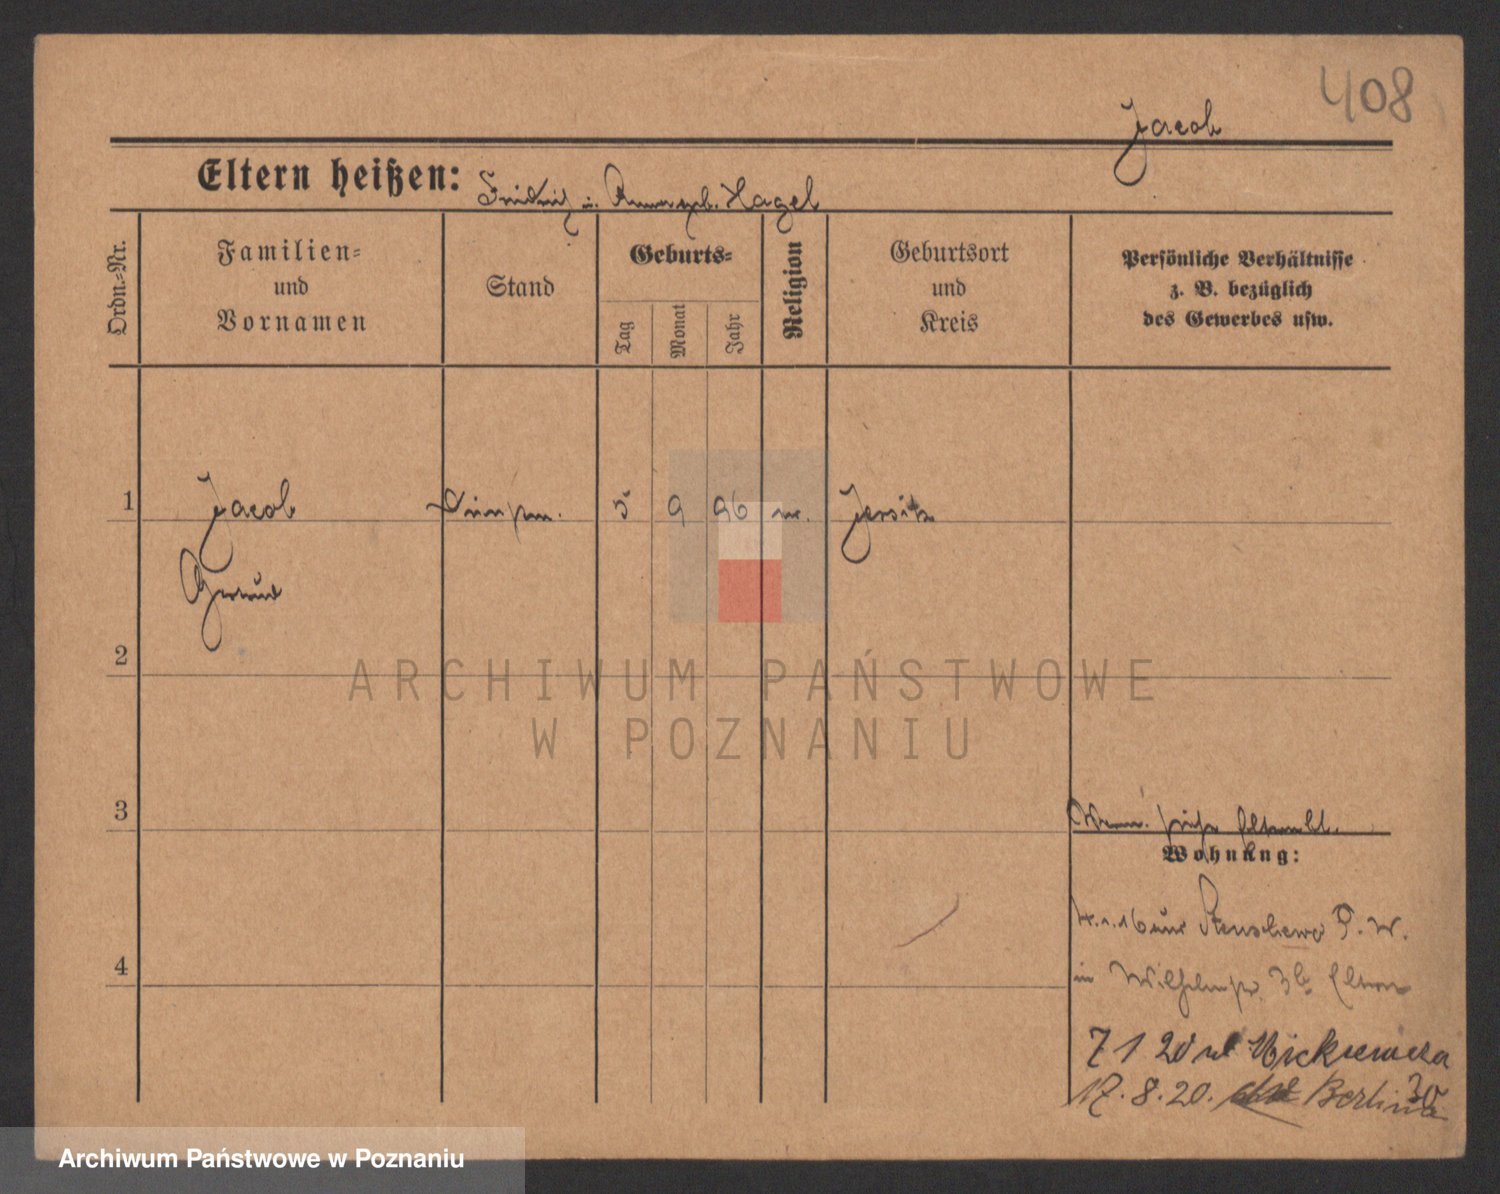 408
Jacob
Eltern heißen: Friedrich u. Anna geb. Hagel
Ordn.-Nr.
Familien-
und
Vornamen
Stand
Geburts-
Tag
Monat
Jahr
Religion
Geburtsort
und
Kreis
Persönliche Verhältnisse
z. B. bezüglich
des Gewerbes usw.
1 Jacob 5 9 96 Jersitz
2
3
4
Wohnung:
Stenschewo P. W.
in Wilhelmstr. Eltern
7 1 20 ul Mickiewicza
30
17. 8. 20. Berlina
ARCHIWUM PAŃSTWOWE
W POZNANIU
Archiwum Państwowe w Poznaniu